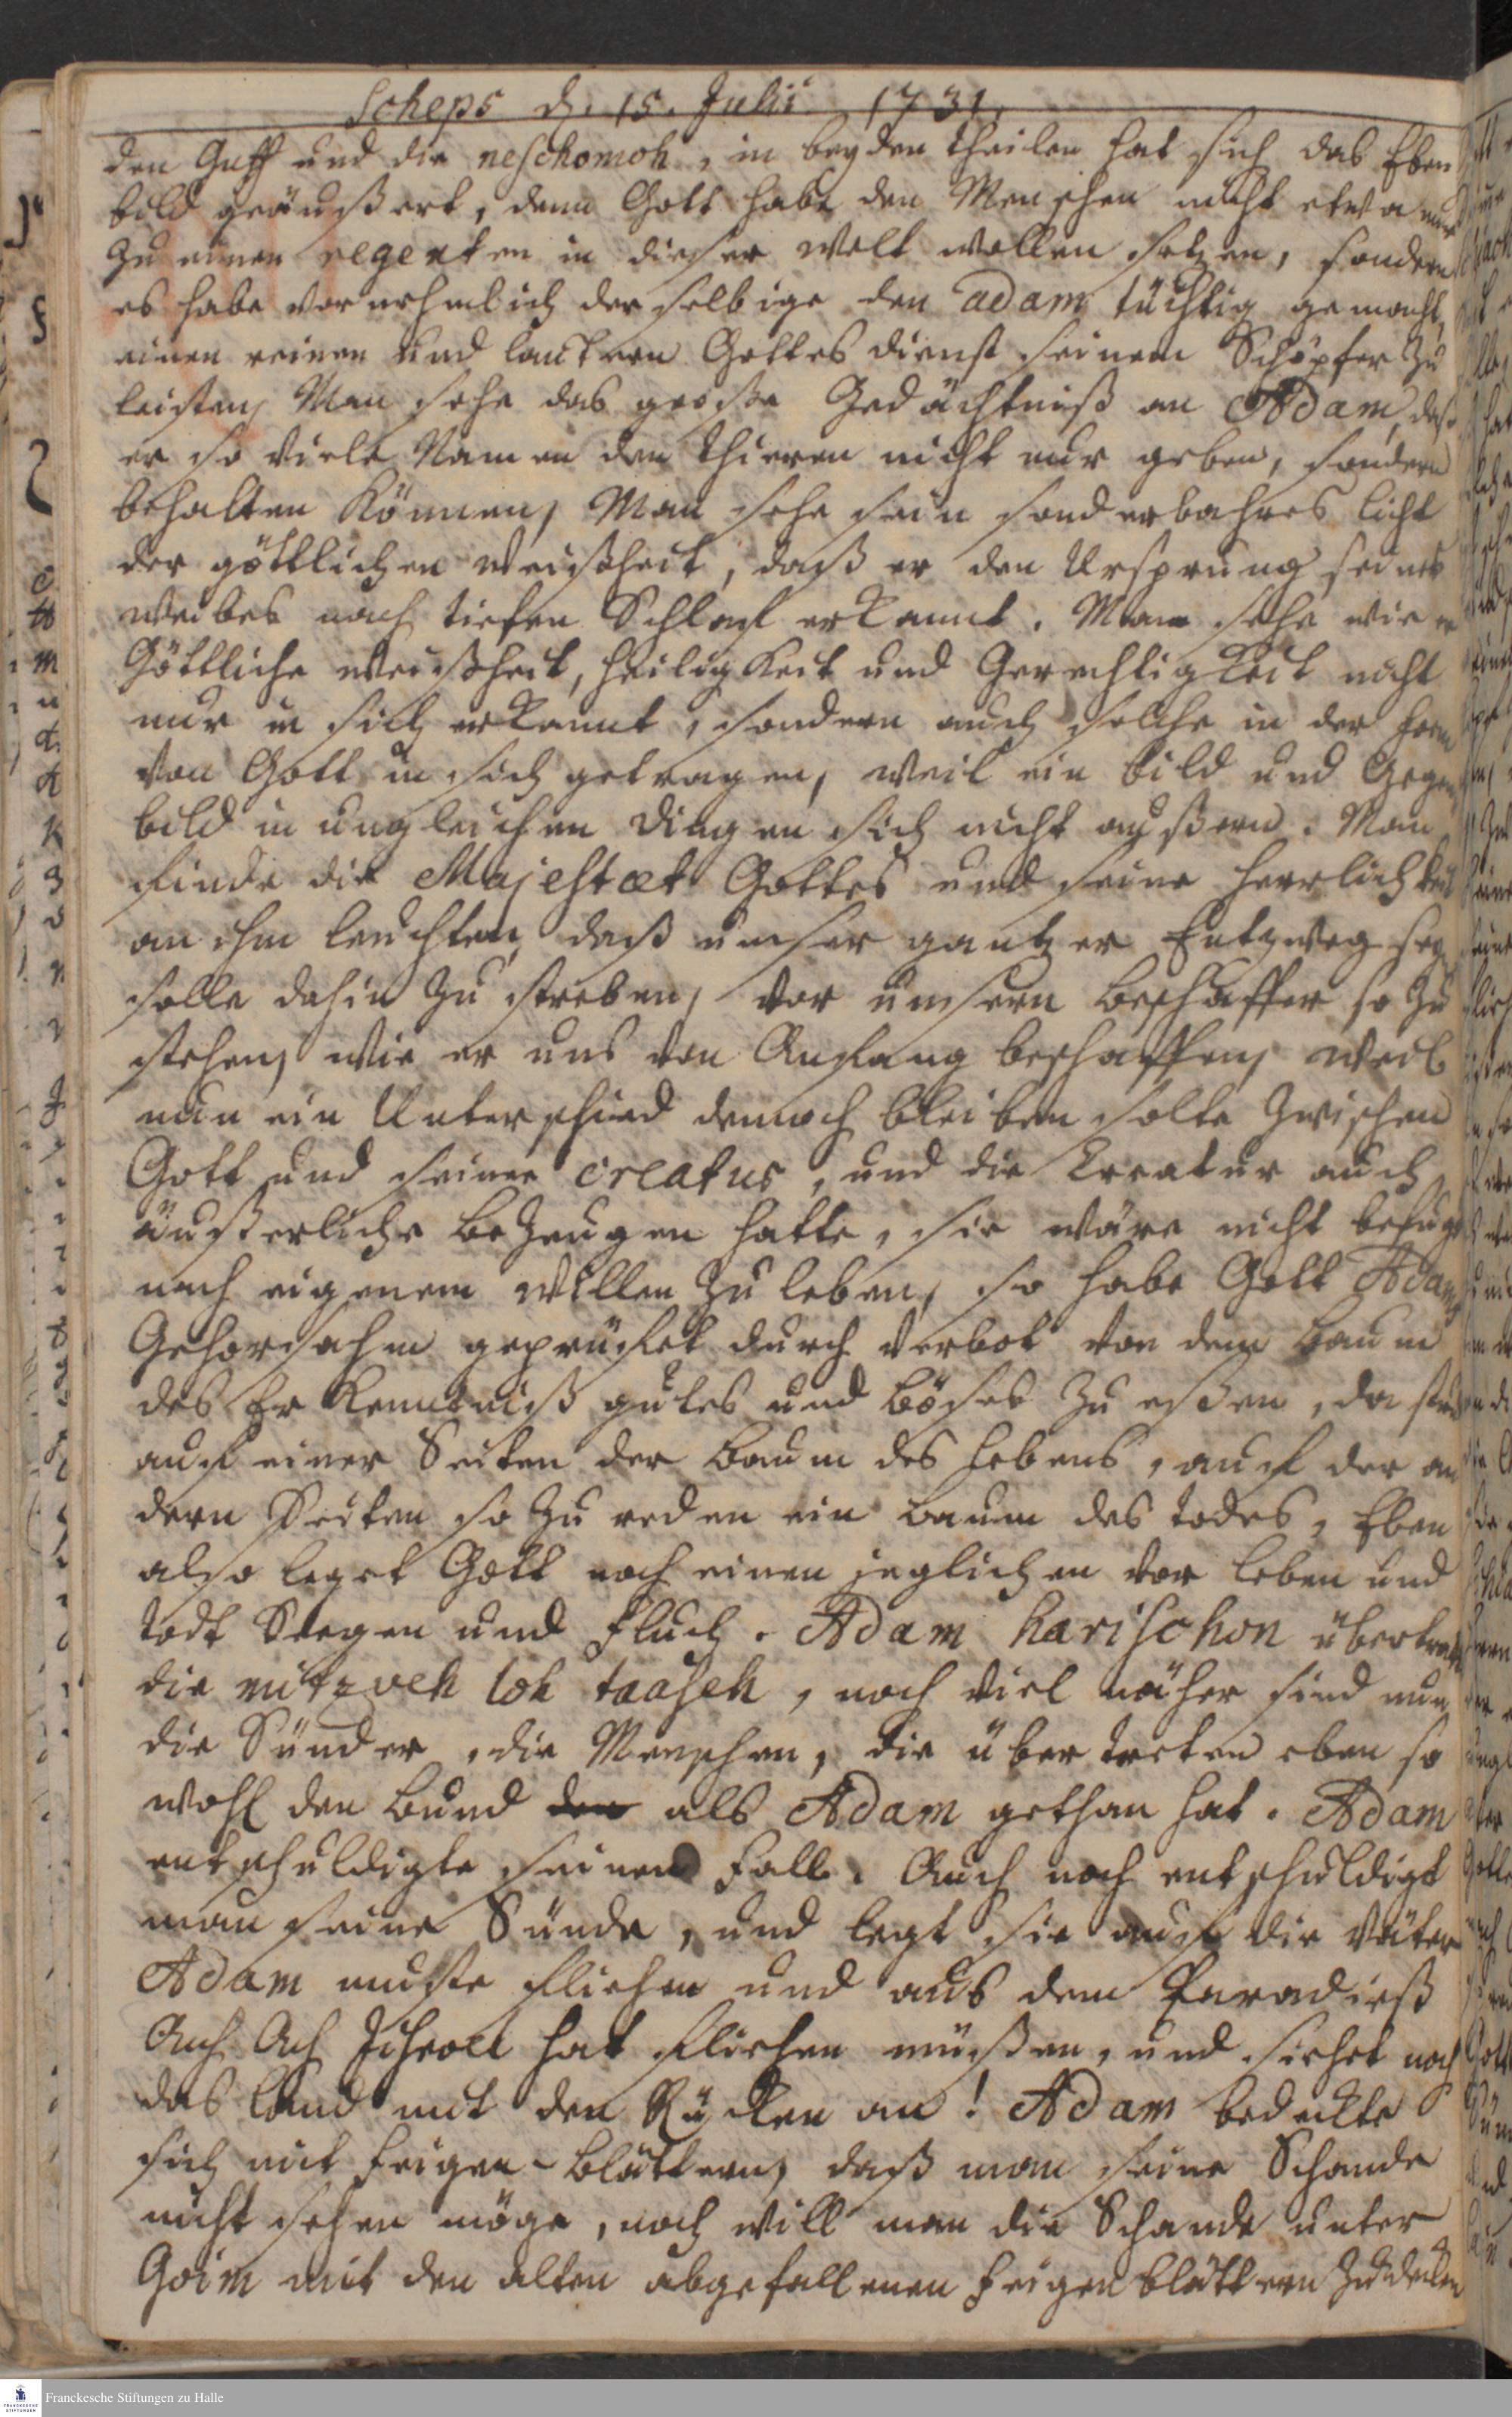 Scheps d. 15. Julii 1731.
den Guff und die neschomoh, in beyden theilen hat sich das Eben
bild geäußert, denn Gott habe den Menschen nicht etwa nur
zu einen regenten in dieser Welt wollen setzen, sondern
es habe vornehmlich derselbige den adam tüchtig gemacht,
einen reinen und lautern Gottesdienst seinem Schöpfer zu
leisten, Man sehe das große Gedächtniß an Adam, daß
er so viele Namen den thieren nicht nur geben, sondern
behalten können, Man sehe sein sonderbahres licht
der göttlichen Weißheit, daß er den Ursprung seines
Weibes nach tiefen Schlaf erkannt. Man sehe wie er
Göttliche Weißheit, heiligkeit und Gerechtigkeit nicht
nur in sich erkannt, sondern auch solche in der form
von Gott in sich getragen, weil ein bild und Gegen
bild in ungleichen Dingen sich nicht äußern. Man
finde die Majestæt Gottes und seine herrlichkeit
an ihm leuchten, daß unser gantzer Entzweg seyn
solle dahin zu streben, vor unsern beschaffer so zu
stehen, wie er uns von Anfang beschaffen, weil
nun ein Unterschied dennoch bleiben solte zwischen
Gott und seiner creatur, und die Creatur auch
äußerliche bezeugen hatte, sie wäre nicht befugt
nach eigenem willen zu leben, so habe Gott Adams
Gehorsahm geprüfet durch verbot von dem baum
des Erkenntniß gutes und böses zu eßen, da stund
auf einer Seiten der baum des lebens, auf der an
dern Seiten so zu reden ein baum des todes, Eben
also leget Gott noch einen jeglichen vor leben und
todt Seegen und Fluch. Adam harischon übertratt
die mitzveh loh taaseh, noch viel näher sind nun
die Sünder, die Menschen, die übertreten eben so
wohl den bund den als Adam gethan hat. Adam
entschuldigte seinen fall. Auch noch entschuldigt
man seine Sünde, und legt sie auf die Väter
Adam muste fliehen und aus dem Paradieß
Auch Ach Jisroel hat fliehen müßen, und siehet noch
das land mit den Rücken an! Adam bedeckte
sich mit feigen-blättern, daß man seine Schande
nicht sehen möge, noch will man die Schande unter
Goim mit den alten abgefallenen feigenblättern zudecken
Franckesche Stiftungen zu Halle